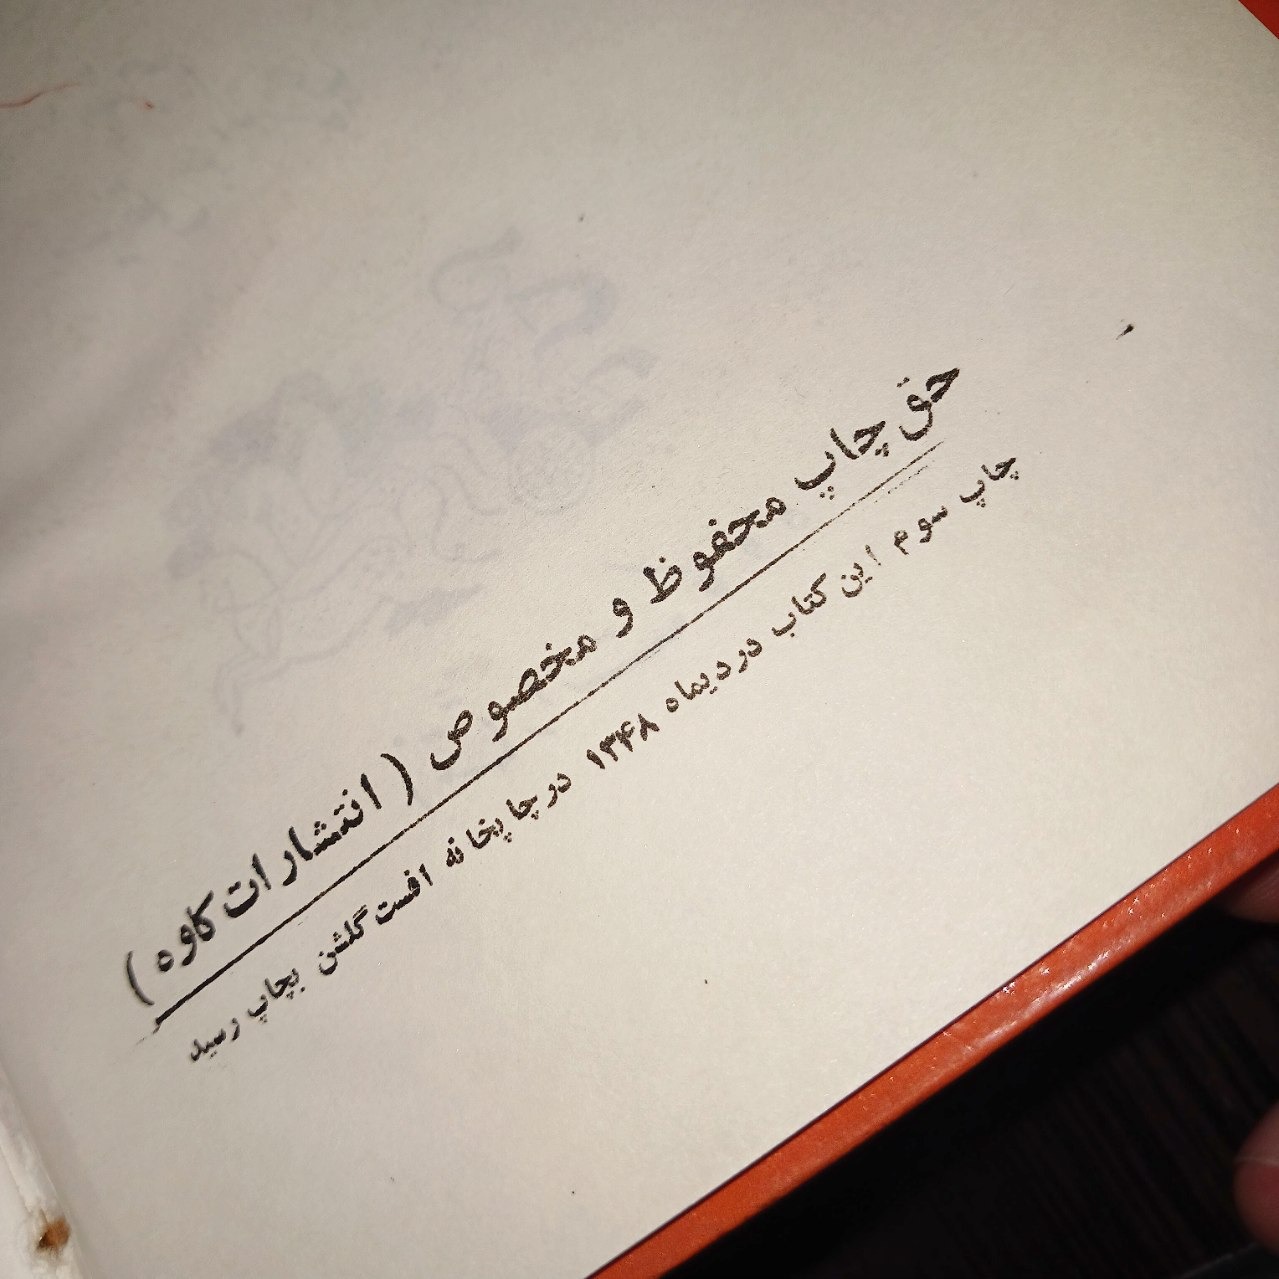 حق چاپ محفوظ و مخصوص ( انتشارات کاوه )
چاپ سوم این کتاب در دیماه ۱۳۴۸ در چاپخانه افست گلشن بچاپ رسید